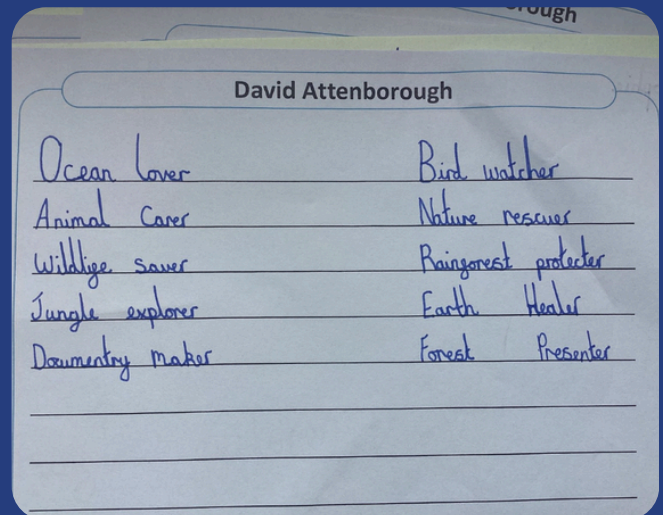 ough
David Attenborough
Ocean lover
Animal Carer
Wildlife saver
Jungle explorer
Documentry maker
Bird watcher
Nature rescuer
Rainforest protecter
Earth Healer
Forest Presenter